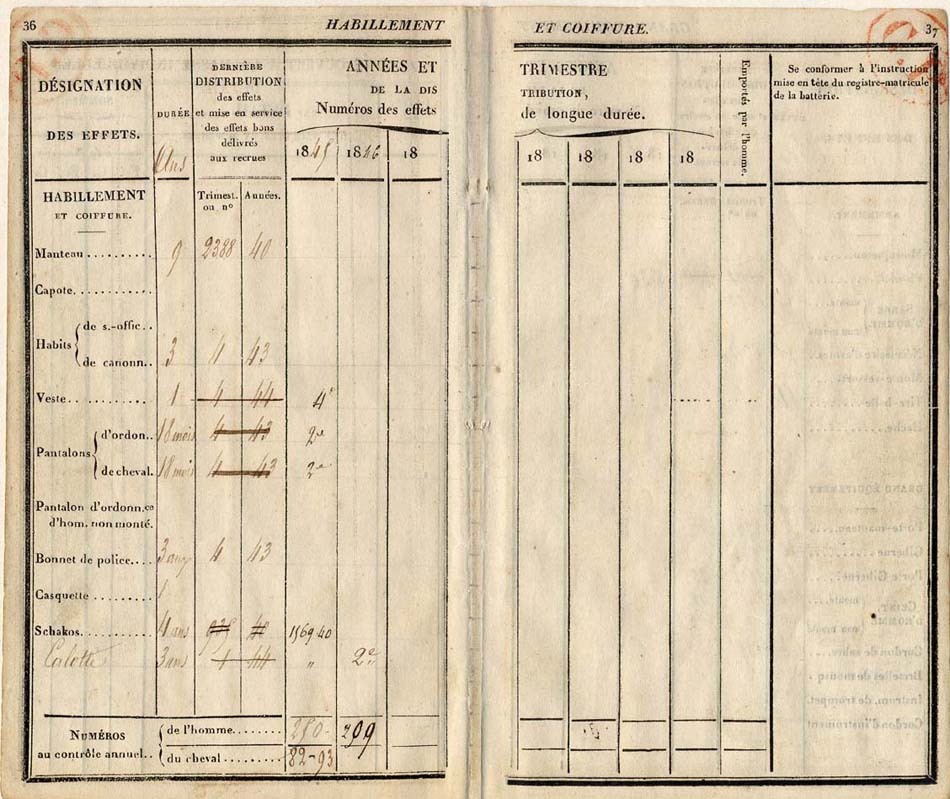 36
HABILLEMENT
DÉSIGNATION
DES EFFETS.
DURÉE
Ans
DERNIÈRE
DISTRIBUTION
des effets
et mise en service
des effets bons
délivrés
aux recrues
ANNÉES ET
DE LA DIS
Numéros des effets
1845 1846 18
HABILLEMENT
ET COIFFURE.
Trimest. ou nº
Années.
Manteau.......... 9 2388 40
Capote...........
Habits
de s.-offic..
de canonn.. 3 4 43
Veste.......... 1 4 44 4e
Pantalons
d'ordon.. 18 mois 4 43 2e
de cheval. 18 mois 4 43 2e
Pantalon d'ordonn.ce
d'hom. non monté.
Bonnet de police.... 3 ans 4 43
Casquette ........ 1
Schakos.......... 4 ans 1569 40
Calotte 3 ans 4 44 " 2e
NUMÉROS
au contrôle annuel..
de l'homme........ 250 209
du cheval ......... 82-93
ET COIFFURE.
37
TRIMESTRE
TRIBUTION,
de longue durée.
18 18 18 18
Emportés par l'homme.
Se conformer à l'instruction
mise en tête du registre-matricule
de la batterie.